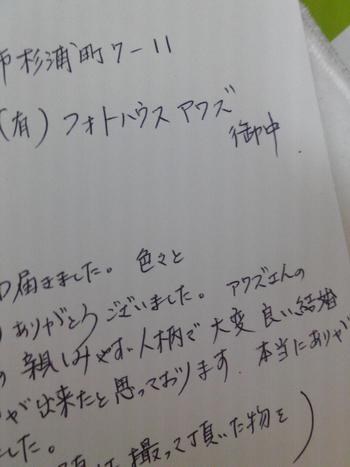 市杉浦町7-11
(有)フォトハウス アワズ
御中
届きました。色々と
ありがとうございました。アワズさんの
親しみやすい人柄で大変良い結婚
が出来たと思っております。本当にありが
した。
撮って頂いた物を